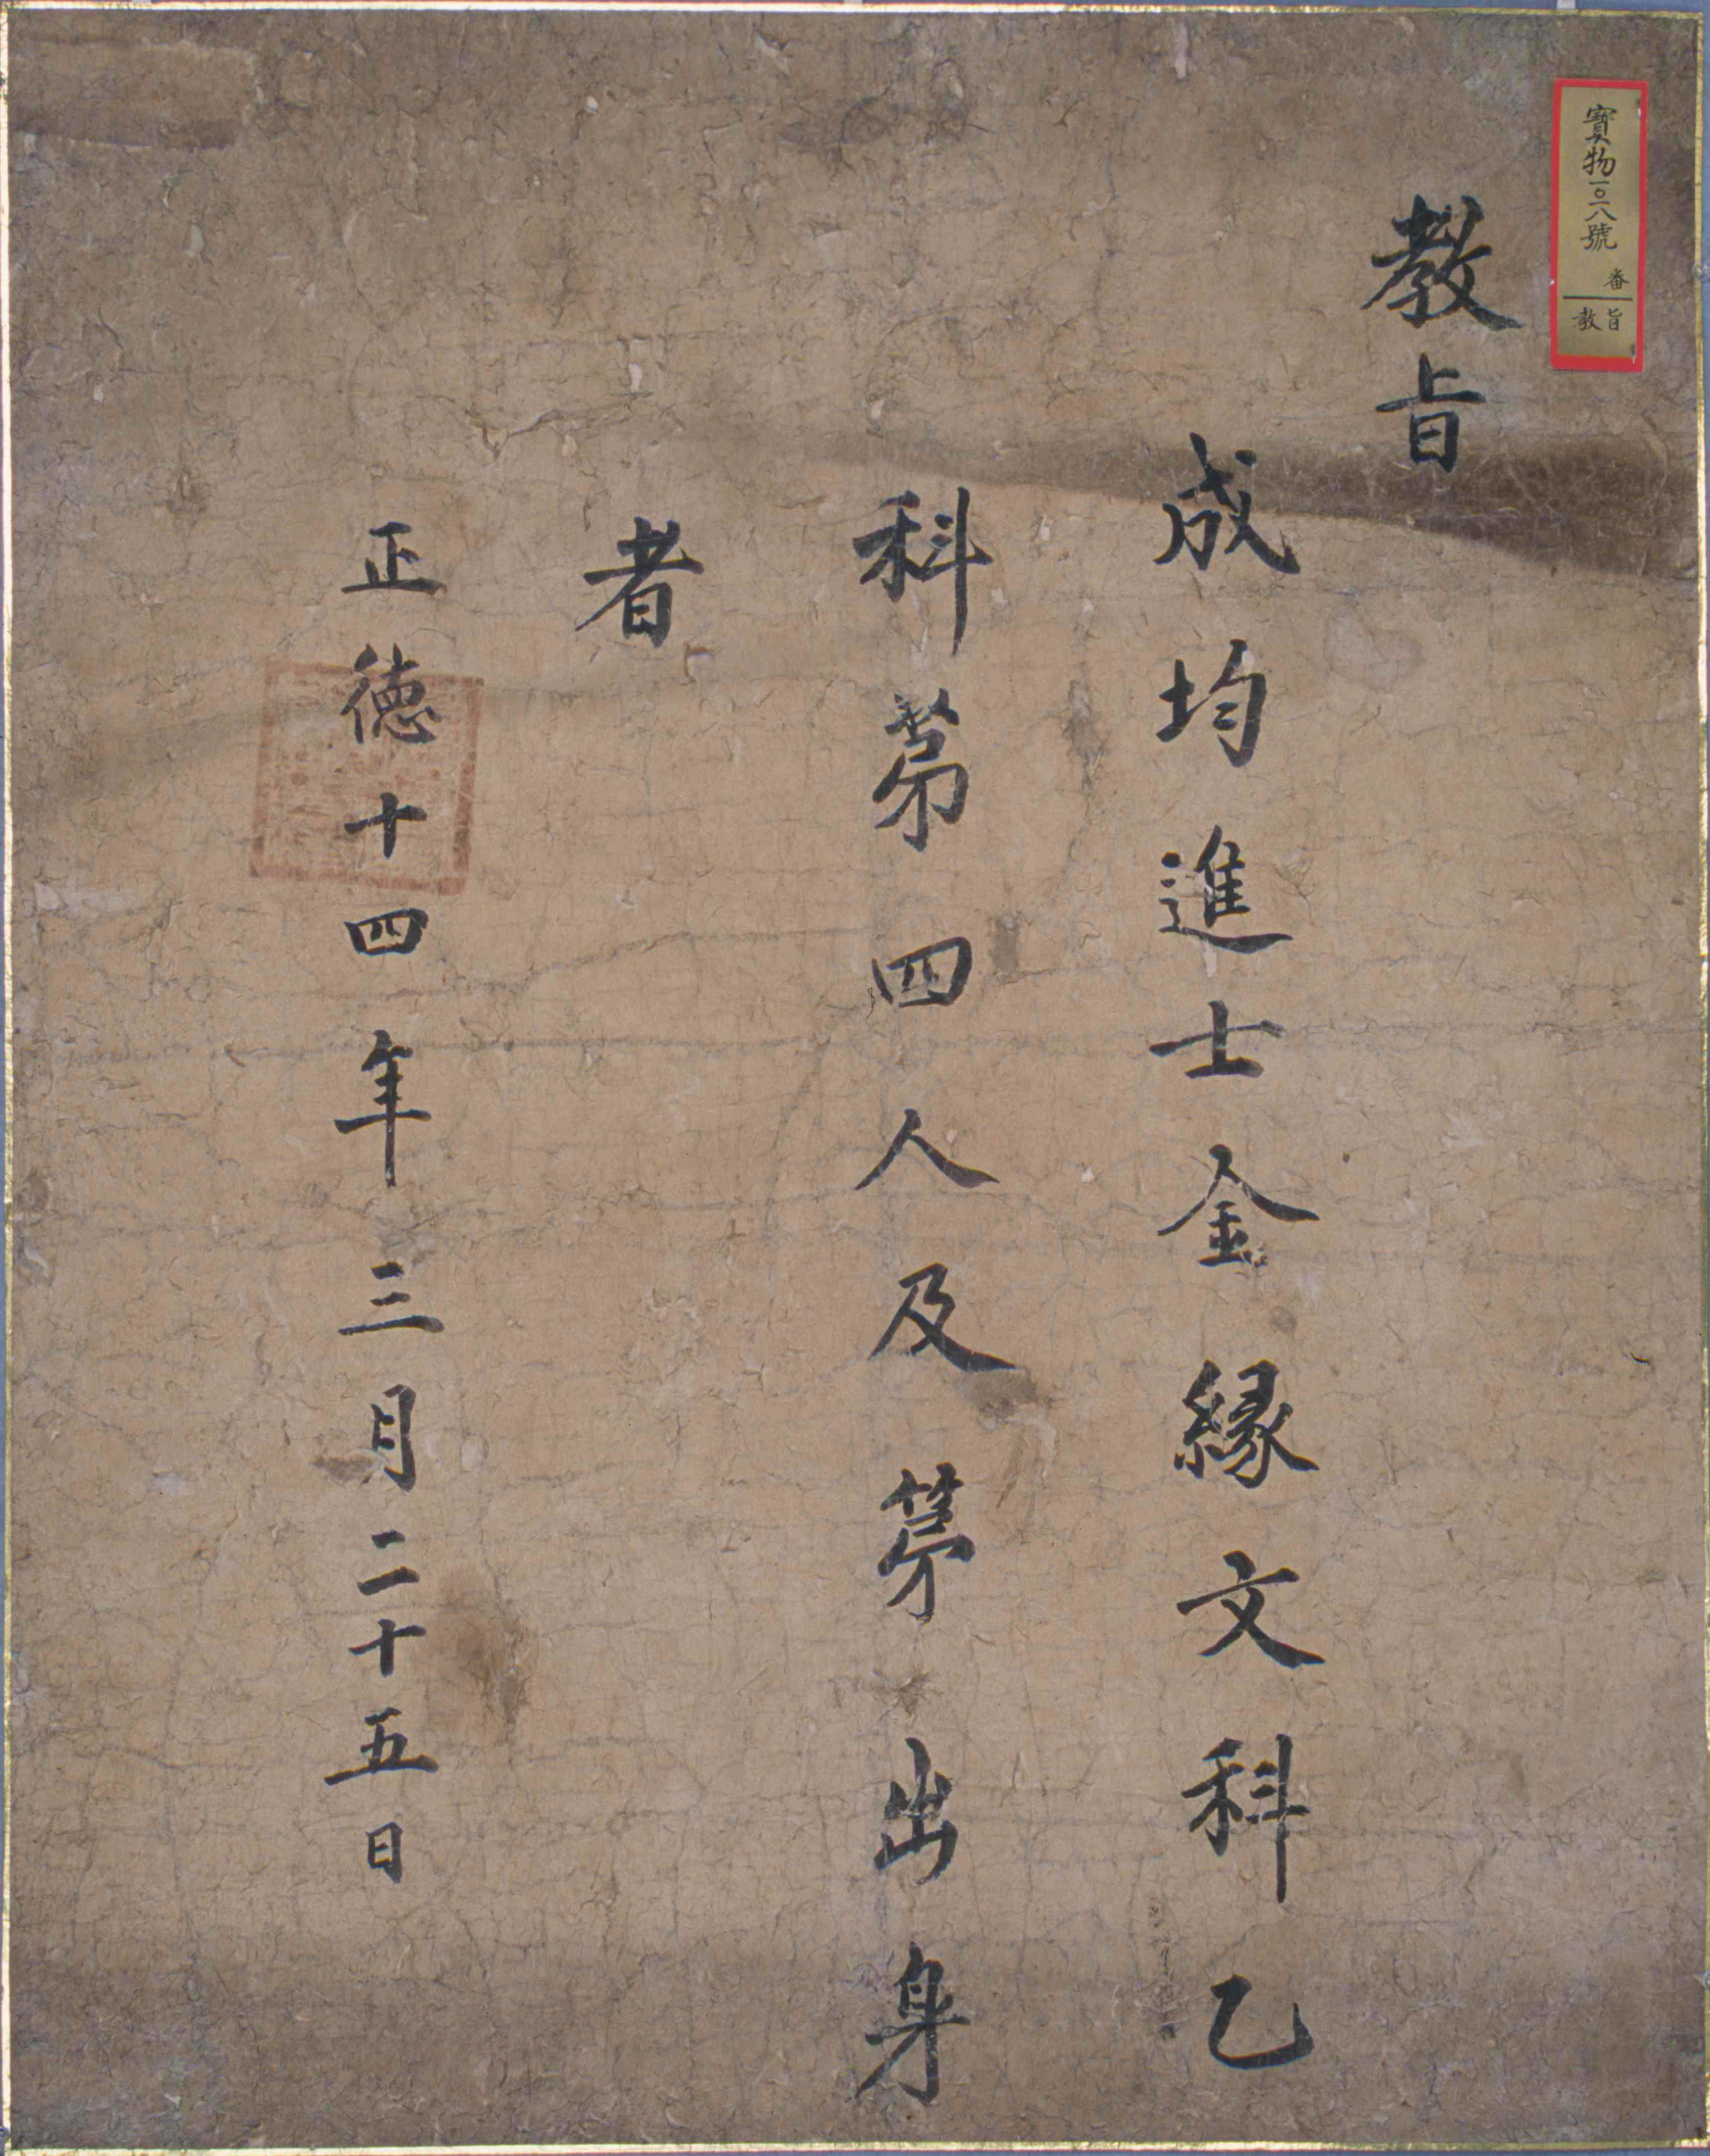 寶物一〇一八號
番
教旨
教旨
成均進士金緣文科乙
科第四人及第出身
者
正德十四年三月二十五日